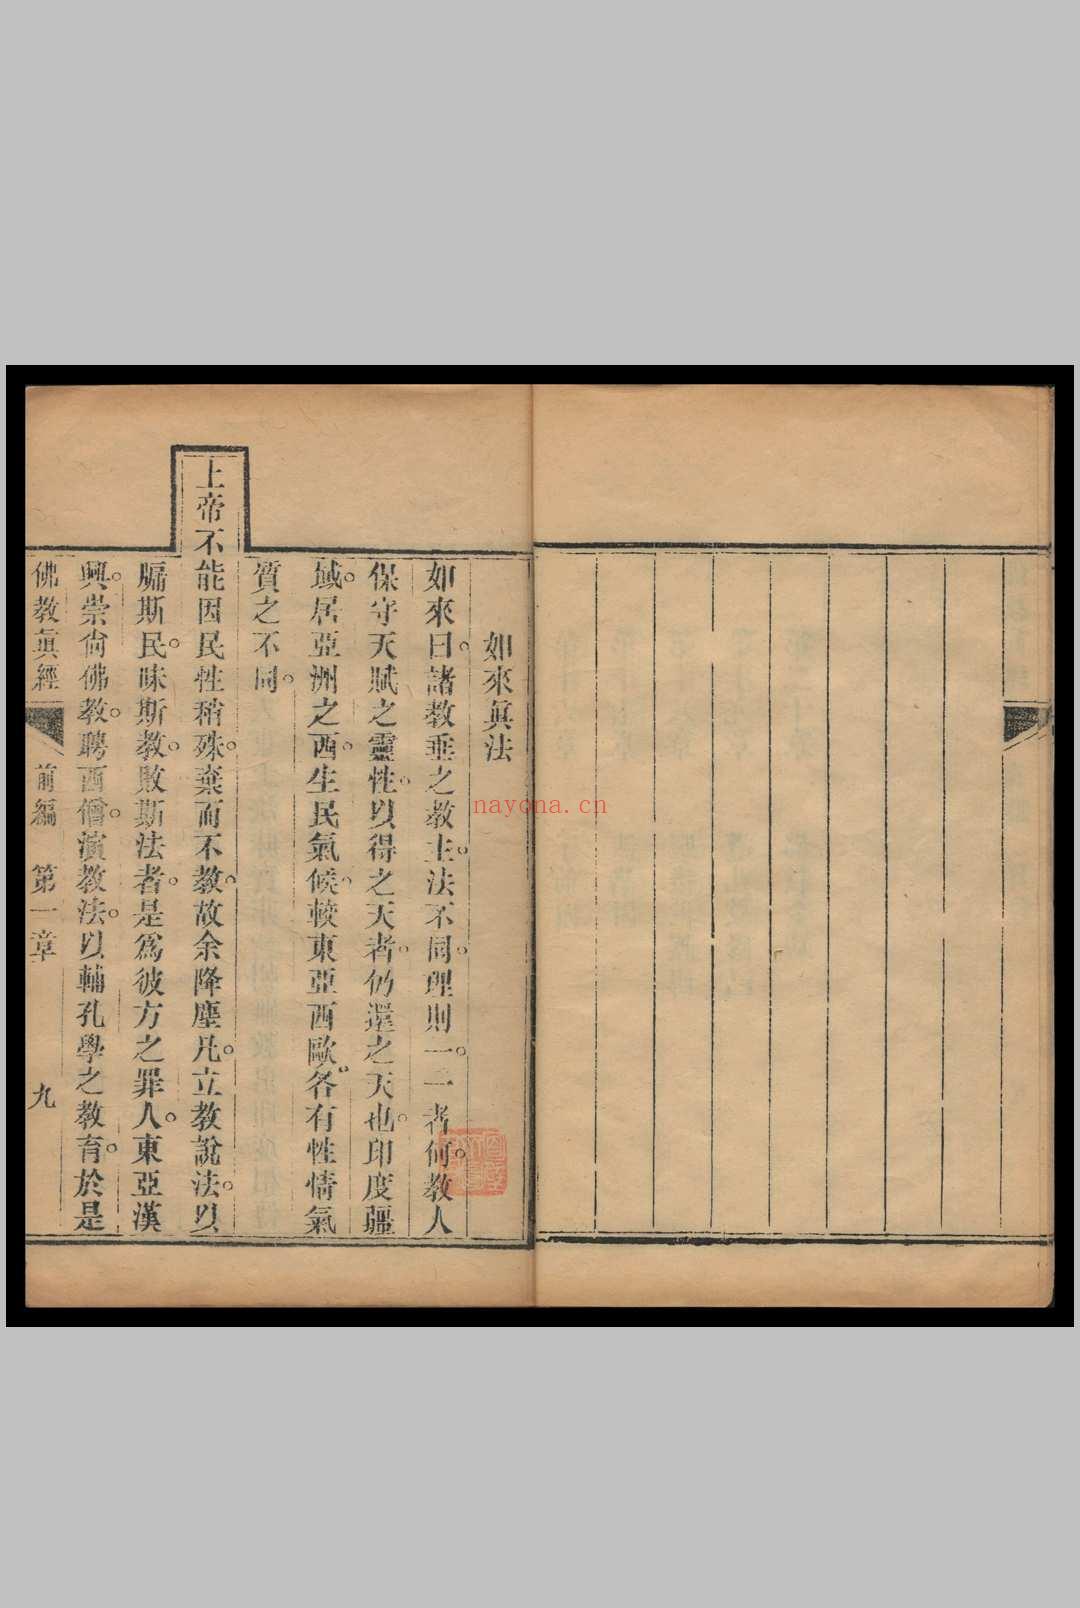 如來眞法
如來曰。諸教垂之教主。法不同。理則一。一者何。教人
保守天賦之靈性。以得之天者。仍還之天也。印度疆
域。居亞洲之西。生民氣候。較東亞西歐。各有性情氣
質之不同。
上帝不能因民性稍殊。棄而不教。故余降塵凡。立教說法。以
牖斯民。昧斯教。敗斯法者。是爲彼方之罪人。東亞漢
興。崇尙佛教。聘西僧。演教法。以輔孔學之教育。於是
佛教眞經 前編 第一章 九
nayona.cn